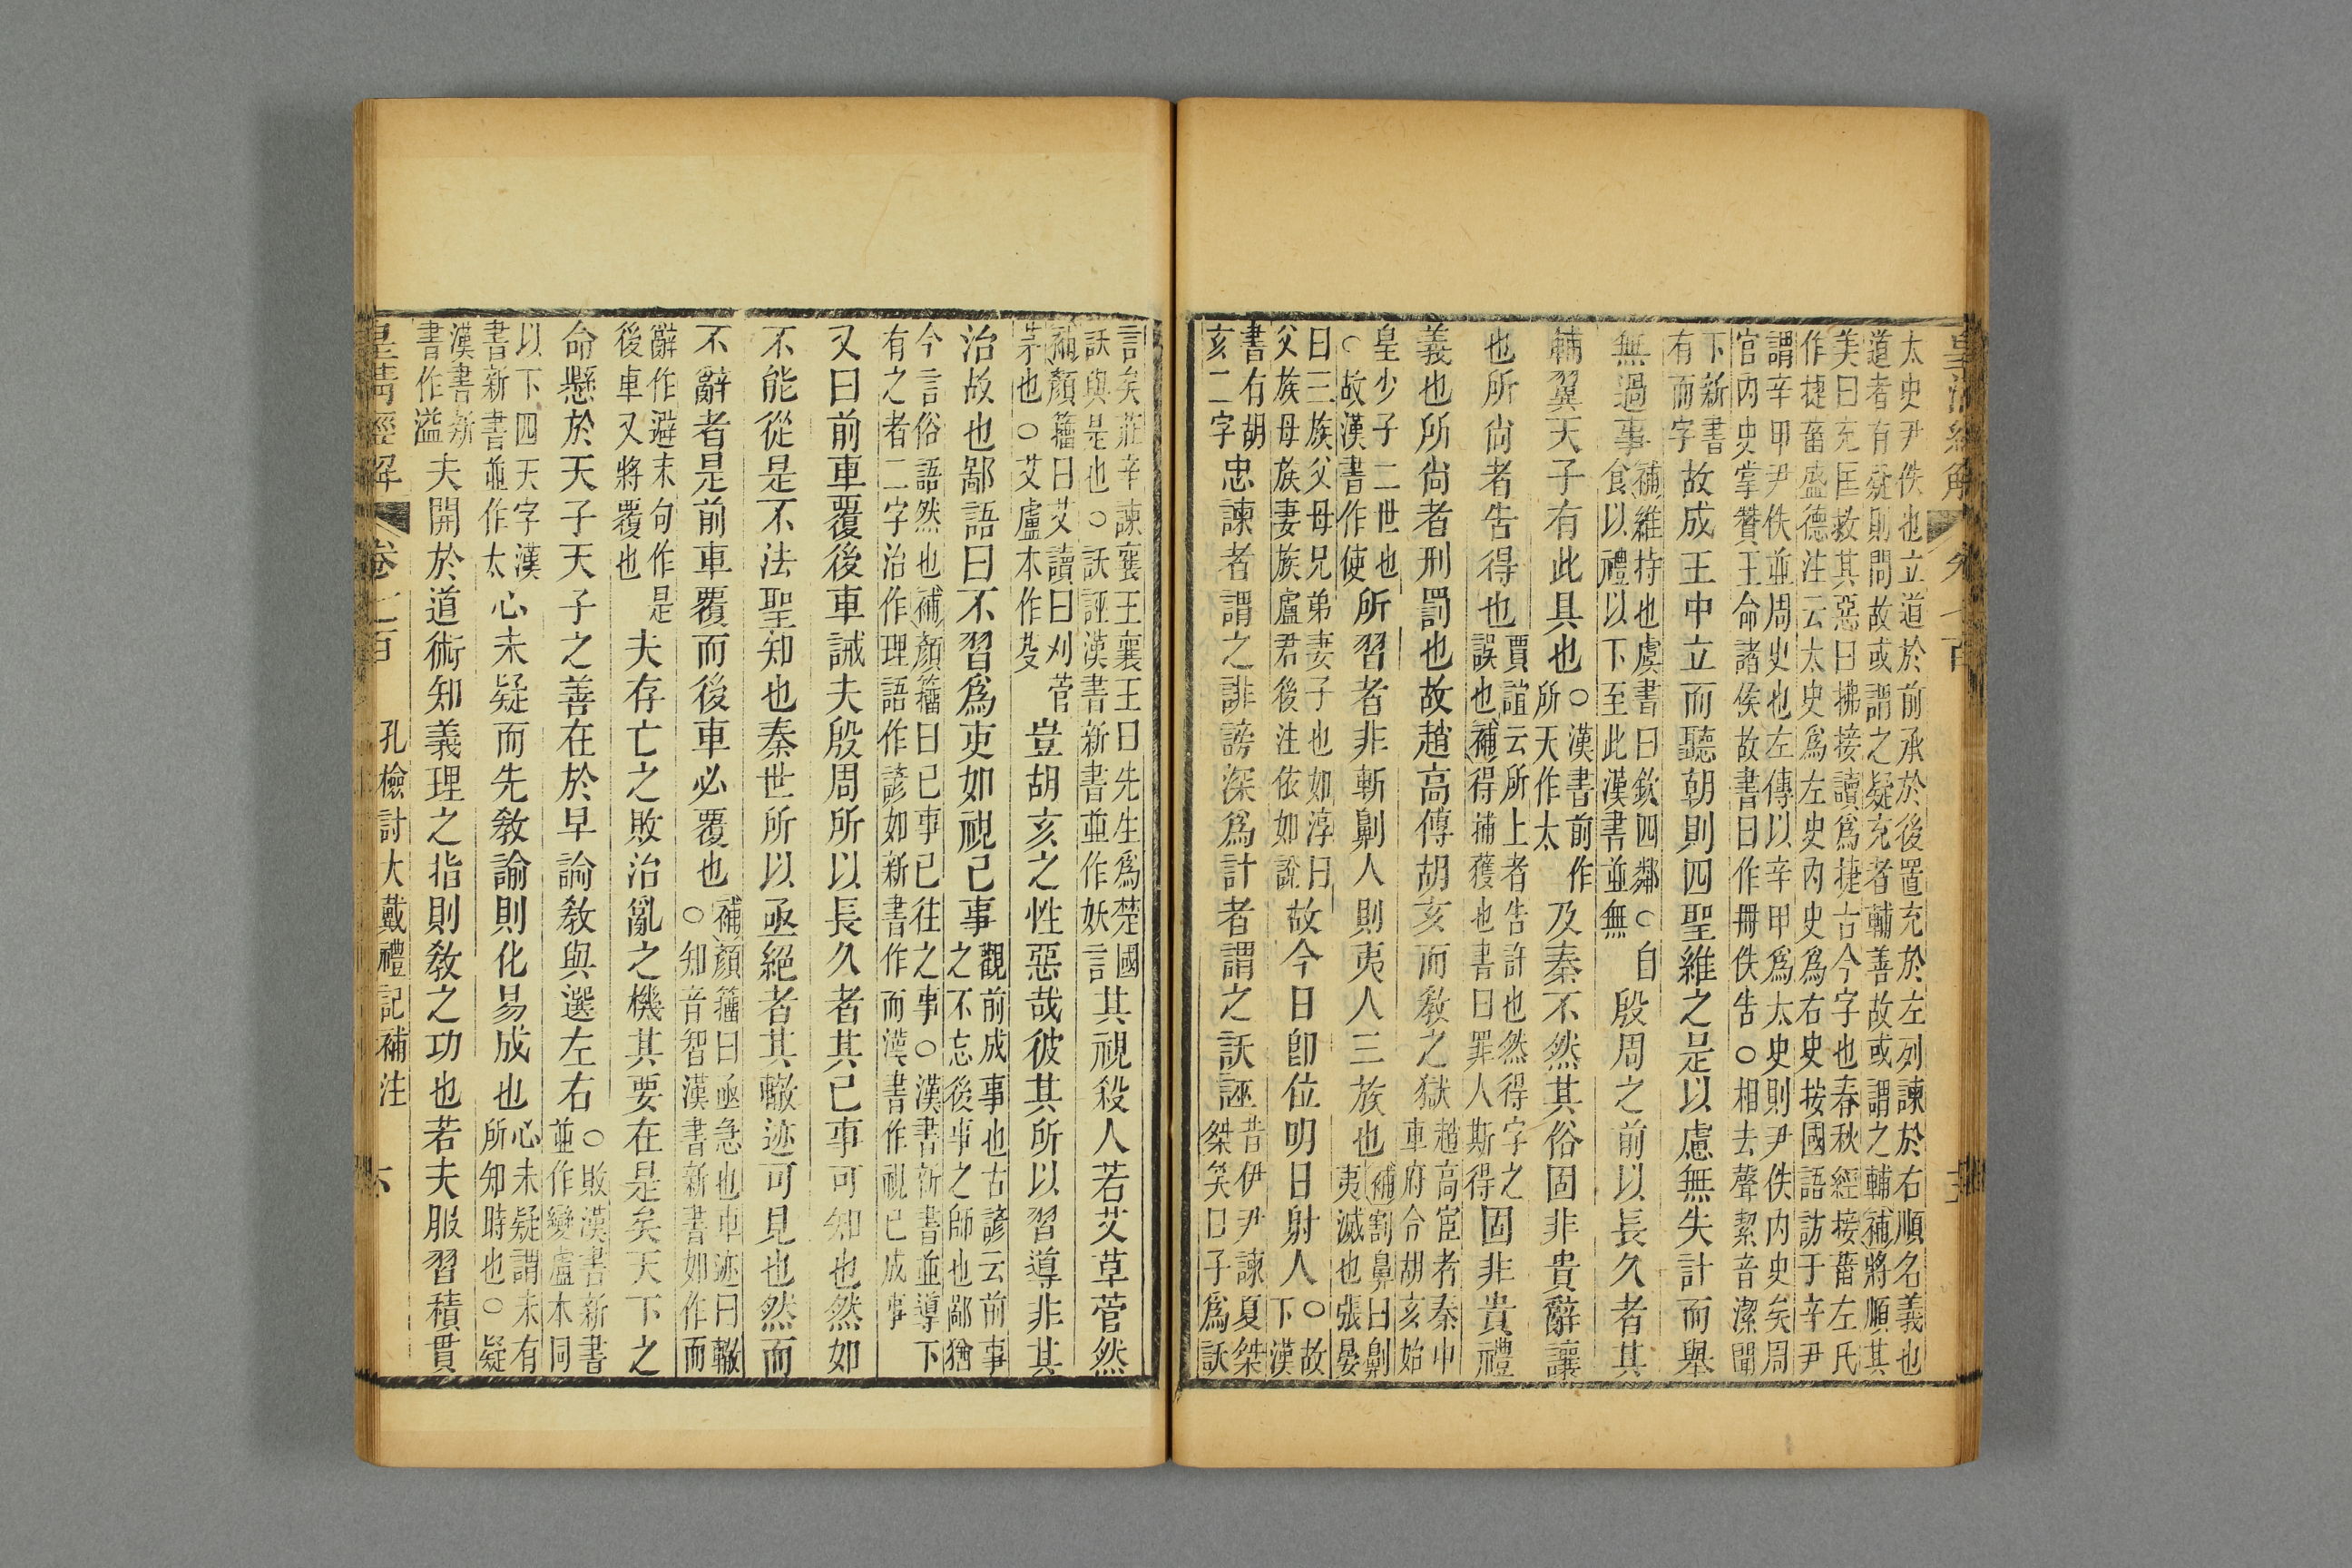 太史尹佚也立道於前承於後置充於左列諫於右順名義也
道者有疑則問故或謂之疑充者輔善故或謂之輔補將順其
美曰充匡救其惡曰拂接讀爲捷古今字也春秋經接菑左氏
作捷菑盛德注云太史爲左史內史爲右史按國語訪于辛尹
謂辛甲尹佚並周史也左傳以辛甲爲太史則尹佚内史矣周
官内史掌贊王命諸侯故書曰作冊佚吿○相去聲絜音潔聞
下新書有而字故成王中立而聽朝則四聖維之是以慮無失計而舉
無過事補維持也虞書曰欽四鄰○自食以禮以下至此漢書並無殷周之前以長久者其
輔翼天子有此具也○漢書前作所天作太及秦不然其俗固非貴辭讓
也所尙者吿得也賈誼云所上者吿訐也然得字之誤也補得捕獲也書曰罪人斯得固非貴禮
義也所尙者刑罰也故趙高傅胡亥而敎之獄趙高宦者秦中車府令胡亥始
皇少子二世也○故漢書作使所習者非斬劓人則夷人三族也補割鼻曰劓夷滅也張晏
曰三族父母兄弟妻子也如淳曰父族母族妻族盧君後注依如說故今日卽位明日射人○故下漢
書有胡亥二字忠諫者謂之誹謗深爲計者謂之訞誣昔伊尹諫夏桀桀笑曰子爲訞
言矣莊辛諫襄王襄王曰先生爲楚國
訞與是也○訞誣漢書新書並作妖言其視殺人若艾草菅然
補顏籀曰艾讀曰刈菅茅也○艾盧本作殳豈胡亥之性惡哉彼其所以習導非其
治故也鄙語曰不習爲吏如視已事觀前成事也古諺云前事之不忘後事之師也鄙猶
今言俗語然也補顏籀曰已事已往之事○漢書新書並導下
有之者二字治作理語作諺如新書作而漢書作視已成事
又曰前車覆後車誡夫殷周所以長久者其已事可知也然如
不能從是不法聖知也秦世所以亟絕者其轍迹可見也然而
不辭者是前車覆而後車必覆也補顏籀曰亟急也車迹曰轍○知音智漢書新書如作而
辭作避末句作是後車又將覆也夫存亡之敗治亂之機其要在是矣天下之
命懸於天子天子之善在於早諭敎與選左右○敗漢書新書並作變盧本同
以下四天字漢書新書並作太心未疑而先敎諭則化易成也心未疑謂未有所知時也○疑
漢書新書作溢夫開於道術知義理之指則敎之功也若夫服習積貫
皇淸經解 卷七百 孔檢討大戴禮記補注 六